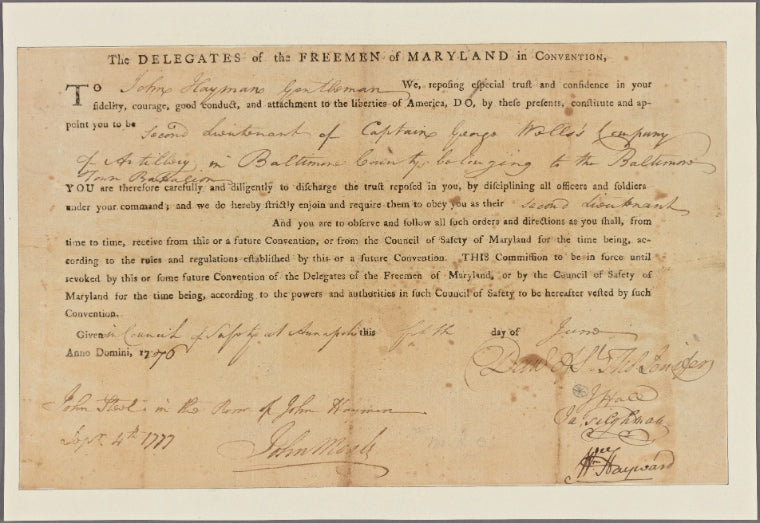 The DELEGATES of the FREEMEN of MARYLAND in CONVENTION,
TO John Hayman Gentleman We, reposing especial trust and confidence in your
fidelity, courage, good conduct, and attachment to the liberties of America, DO, by these presents, constitute and ap-
point you to be Second Lieutenant of Captain George Wells's Company
of Artillery in Baltimore County belonging to the Baltimore
Town Battalion
YOU are therefore carefully and diligently to discharge the trust reposed in you, by disciplining all officers and soldiers
under your command; and we do hereby strictly enjoin and require them to obey you as their Second Lieutenant
And you are to observe and follow all such orders and directions as you shall, from
time to time, receive from this or a future Convention, or from the Council of Safety of Maryland for the time being, ac-
cording to the rules and regulations established by this or a future Convention. THIS Commission to be in force until
revoked by this or some future Convention of the Delegates of the Freemen of Maryland, or by the Council of Safety of
Maryland for the time being, according to the powers and authorities in such Council of Safety to be hereafter vested by such
Convention.
Given in Council of Safety at Annapolis this day of June
Anno Domini, 1776
Danl of St. Thos Jenifer
J Hall
Ja. Tilghman
Wm Hayward
John Steel in the Room of John Hayman
Sept. 4th 1777